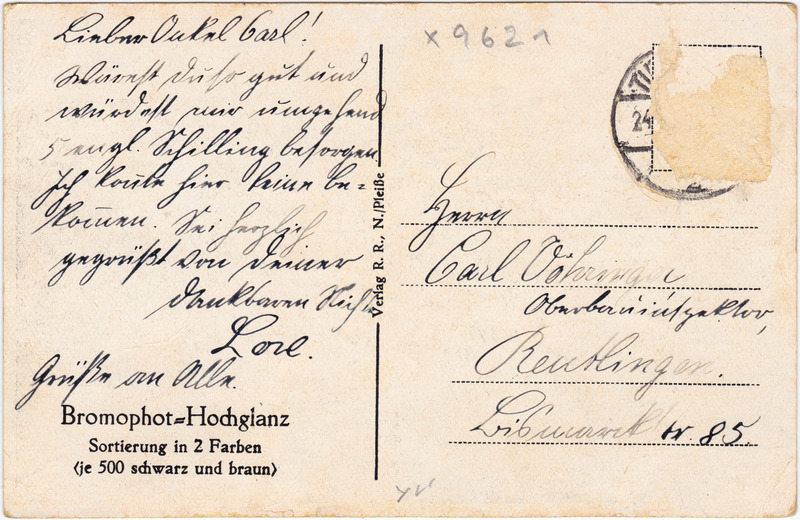 Lieber Onkel Carl!
Wärest Du so gut und
würdest mir umgehend
5 engl. Schilling besorgen.
Ich konnte hier keine be=
kommen. Sei herzlich
gegrüßt von Deiner
dankbaren Nichte
Lore.
Grüße an Alle.
Bromophot=Hochglanz
Sortierung in 2 Farben
(je 500 schwarz und braun)
Verlag R. R., N./Pleiße
x 9621
24
Herrn
Carl Vöhringer
Oberbauinspektor,
Reutlingen.
Bismarckstr. 85.